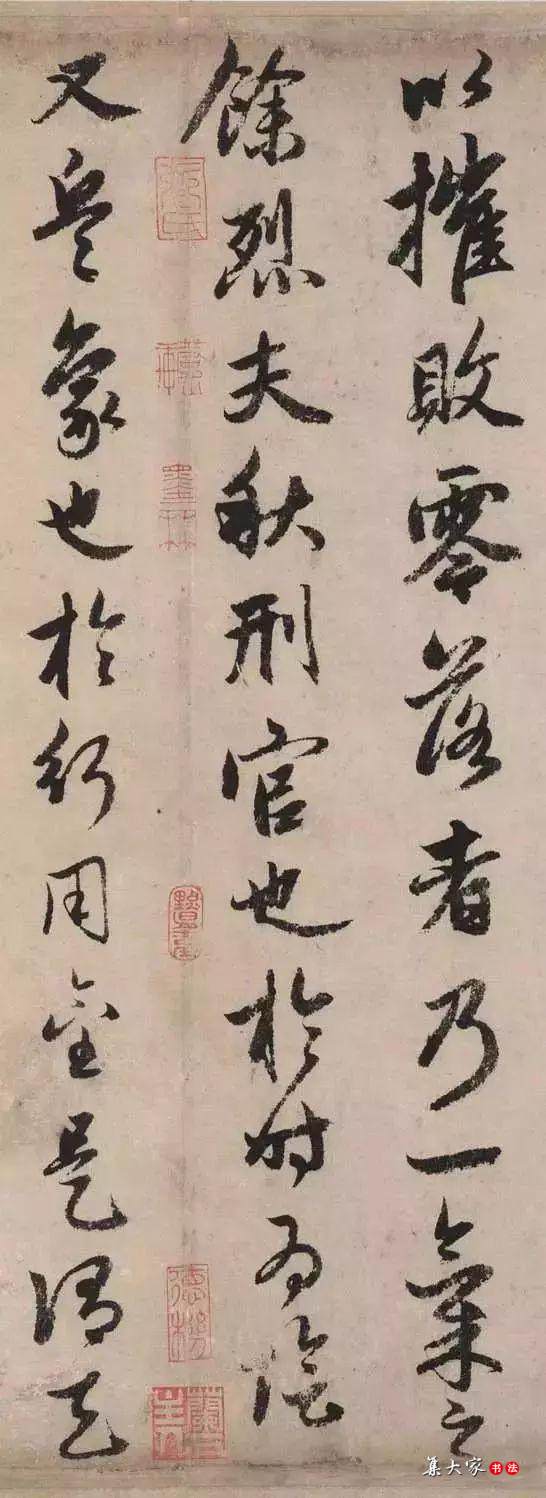 以摧敗零落者乃一氣之
餘烈夫秋刑官也於時為陰
又兵象也於行用金是謂天
集大家書法